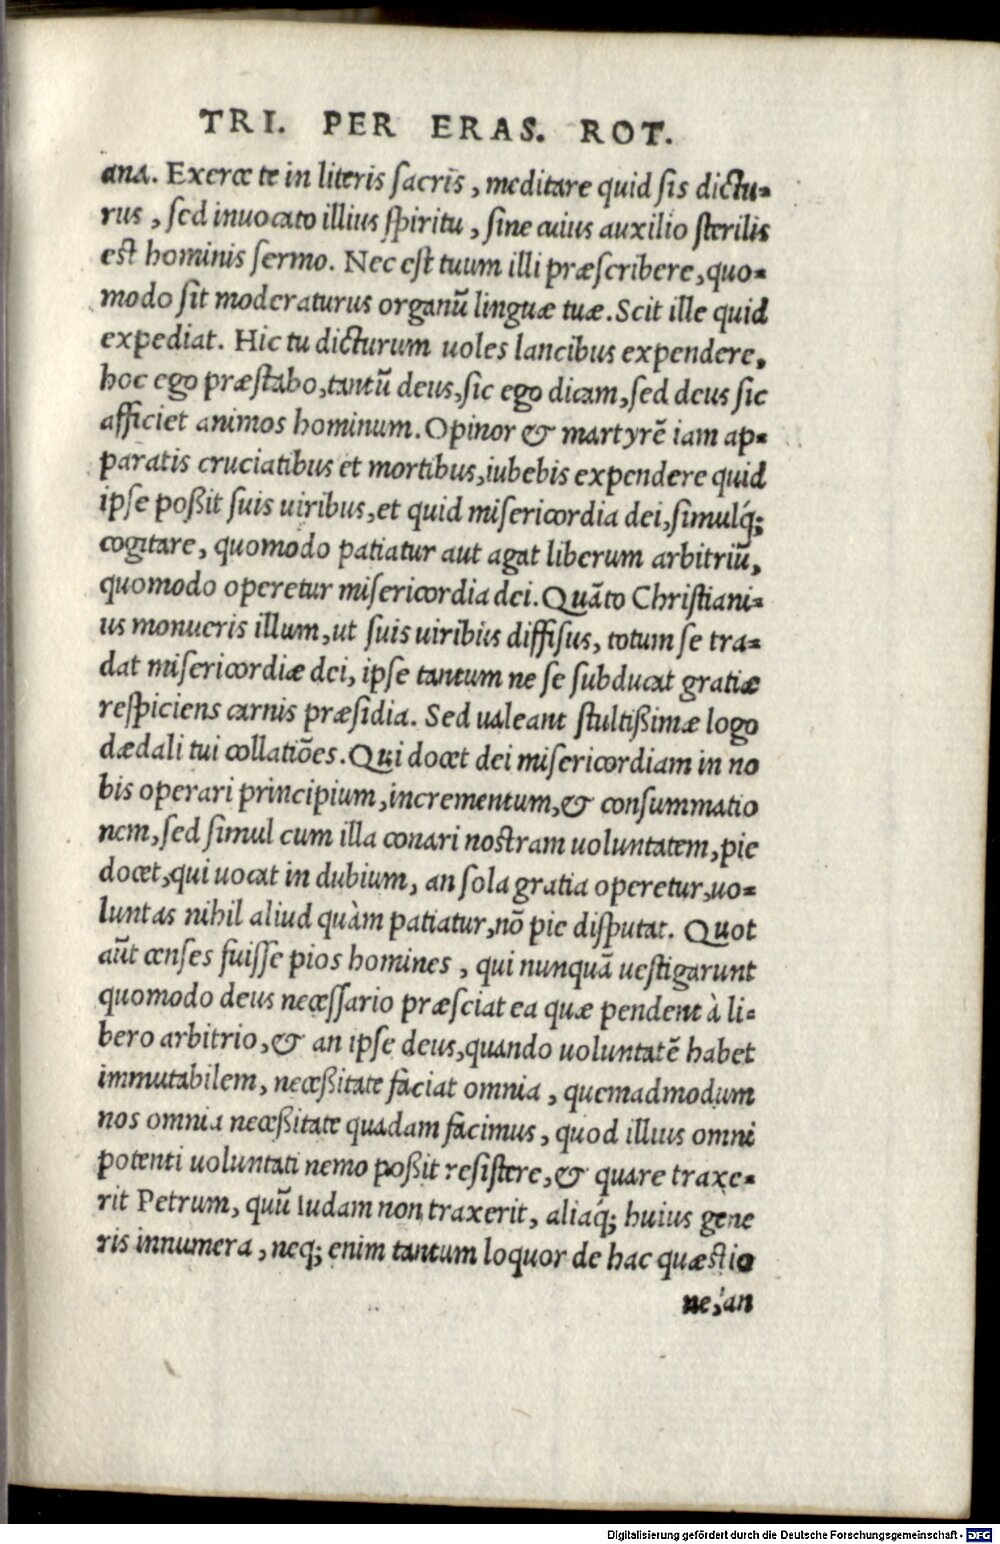 TRI. PER ERAS. ROT.
ana. Exerce te in literis ſacris, meditare quid ſis dictu-
rus, ſed inuocato illius ſpiritu, ſine cuius auxilio ſterilis
est hominis ſermo. Nec eſt tuum illi præſcribere, quo-
modo ſit moderaturus organū linguæ tuæ. Scit ille quid
expediat. Hic tu dicturum uoles lancibus expendere,
hoc ego præſtabo, tantū deus, ſic ego dicam, ſed deus ſic
afficiet animos hominum. Opinor & martyrē iam ap-
paratis cruciatibus et mortibus, iubebis expendere quid
ipſe poßit ſuis uiribus, et quid miſericordia dei, ſimulq́;
cogitare, quomodo patiatur aut agat liberum arbitriū,
quomodo operetur miſericordia dei. Quāto Chriſtiani-
us monueris illum, ut ſuis uiribus diffiſus, totum ſe tra-
dat miſericordiæ dei, ipſe tantum ne ſe ſubducat gratiæ
reſpiciens carnis præſidia. Sed ualeant ſtultißimæ logo
dædali tui collatiōes. Qui docet dei miſericordiam in no
bis operari principium, incrementum, & conſummatio
nem, ſed ſimul cum illa conari nostram uoluntatem, pie
docet, qui uocat in dubium, an ſola gratia operetur, uo-
luntas nihil aliud quàm patiatur, nō pie diſputat. Quot
aūt cenſes fuiſſe pios homines, qui nunquā ueſtigarunt
quomodo deus neceſſario præſciat ea quæ pendent à li-
bero arbitrio, & an ipſe deus, quando uoluntatē habet
immutabilem, neceßitate faciat omnia, quemadmodum
nos omnia neceßitate quadam facimus, quod illius omni
potenti uoluntati nemo poßit reſiſtere, & quare traxe-
rit Petrum, quū Iudam non traxerit, aliaq́; huius gene
ris innumera, neq; enim tantum loquor de hac quæstio
ne, an
Digitalisierung gefördert durch die Deutsche Forschungsgemeinschaft - DFG